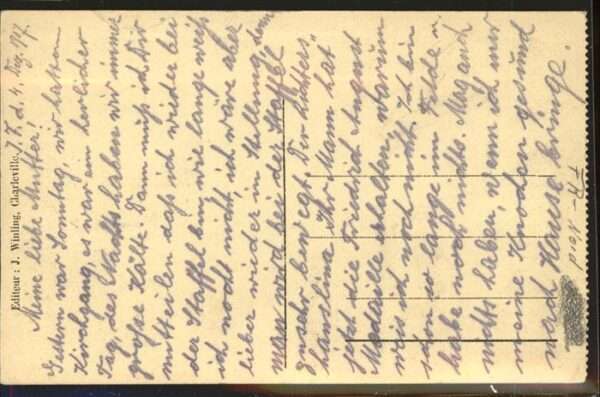 Editeur: J. Winling, Charleville.
J. F. d. 4. Feg. 1917.
Meine liebe Mutter!
Gestern war Sonntag, wir hatten
Kirchgang, es war ein herlicher
Tag, des Nachts haben wir immer
große Kälte. Dann muß ich Dir
mitteilen daß ich wieder bei
der Staffel bin, wie lange weiß
ich noch nicht, ich wäre aber
lieber wieder in Stellung denn
man wird bei der Staffel
zusehr bewegt. Der
Ihr Mann hat
jetzt die Friedrich August
Medaille erhalten, warum
weis ich noch nicht. Ich bin
schon so lange im Felde u.
habe noch nichts. Mag auch
nichts haben, wenn ich nur
meine Knochen gesund
nach Hause bringe.